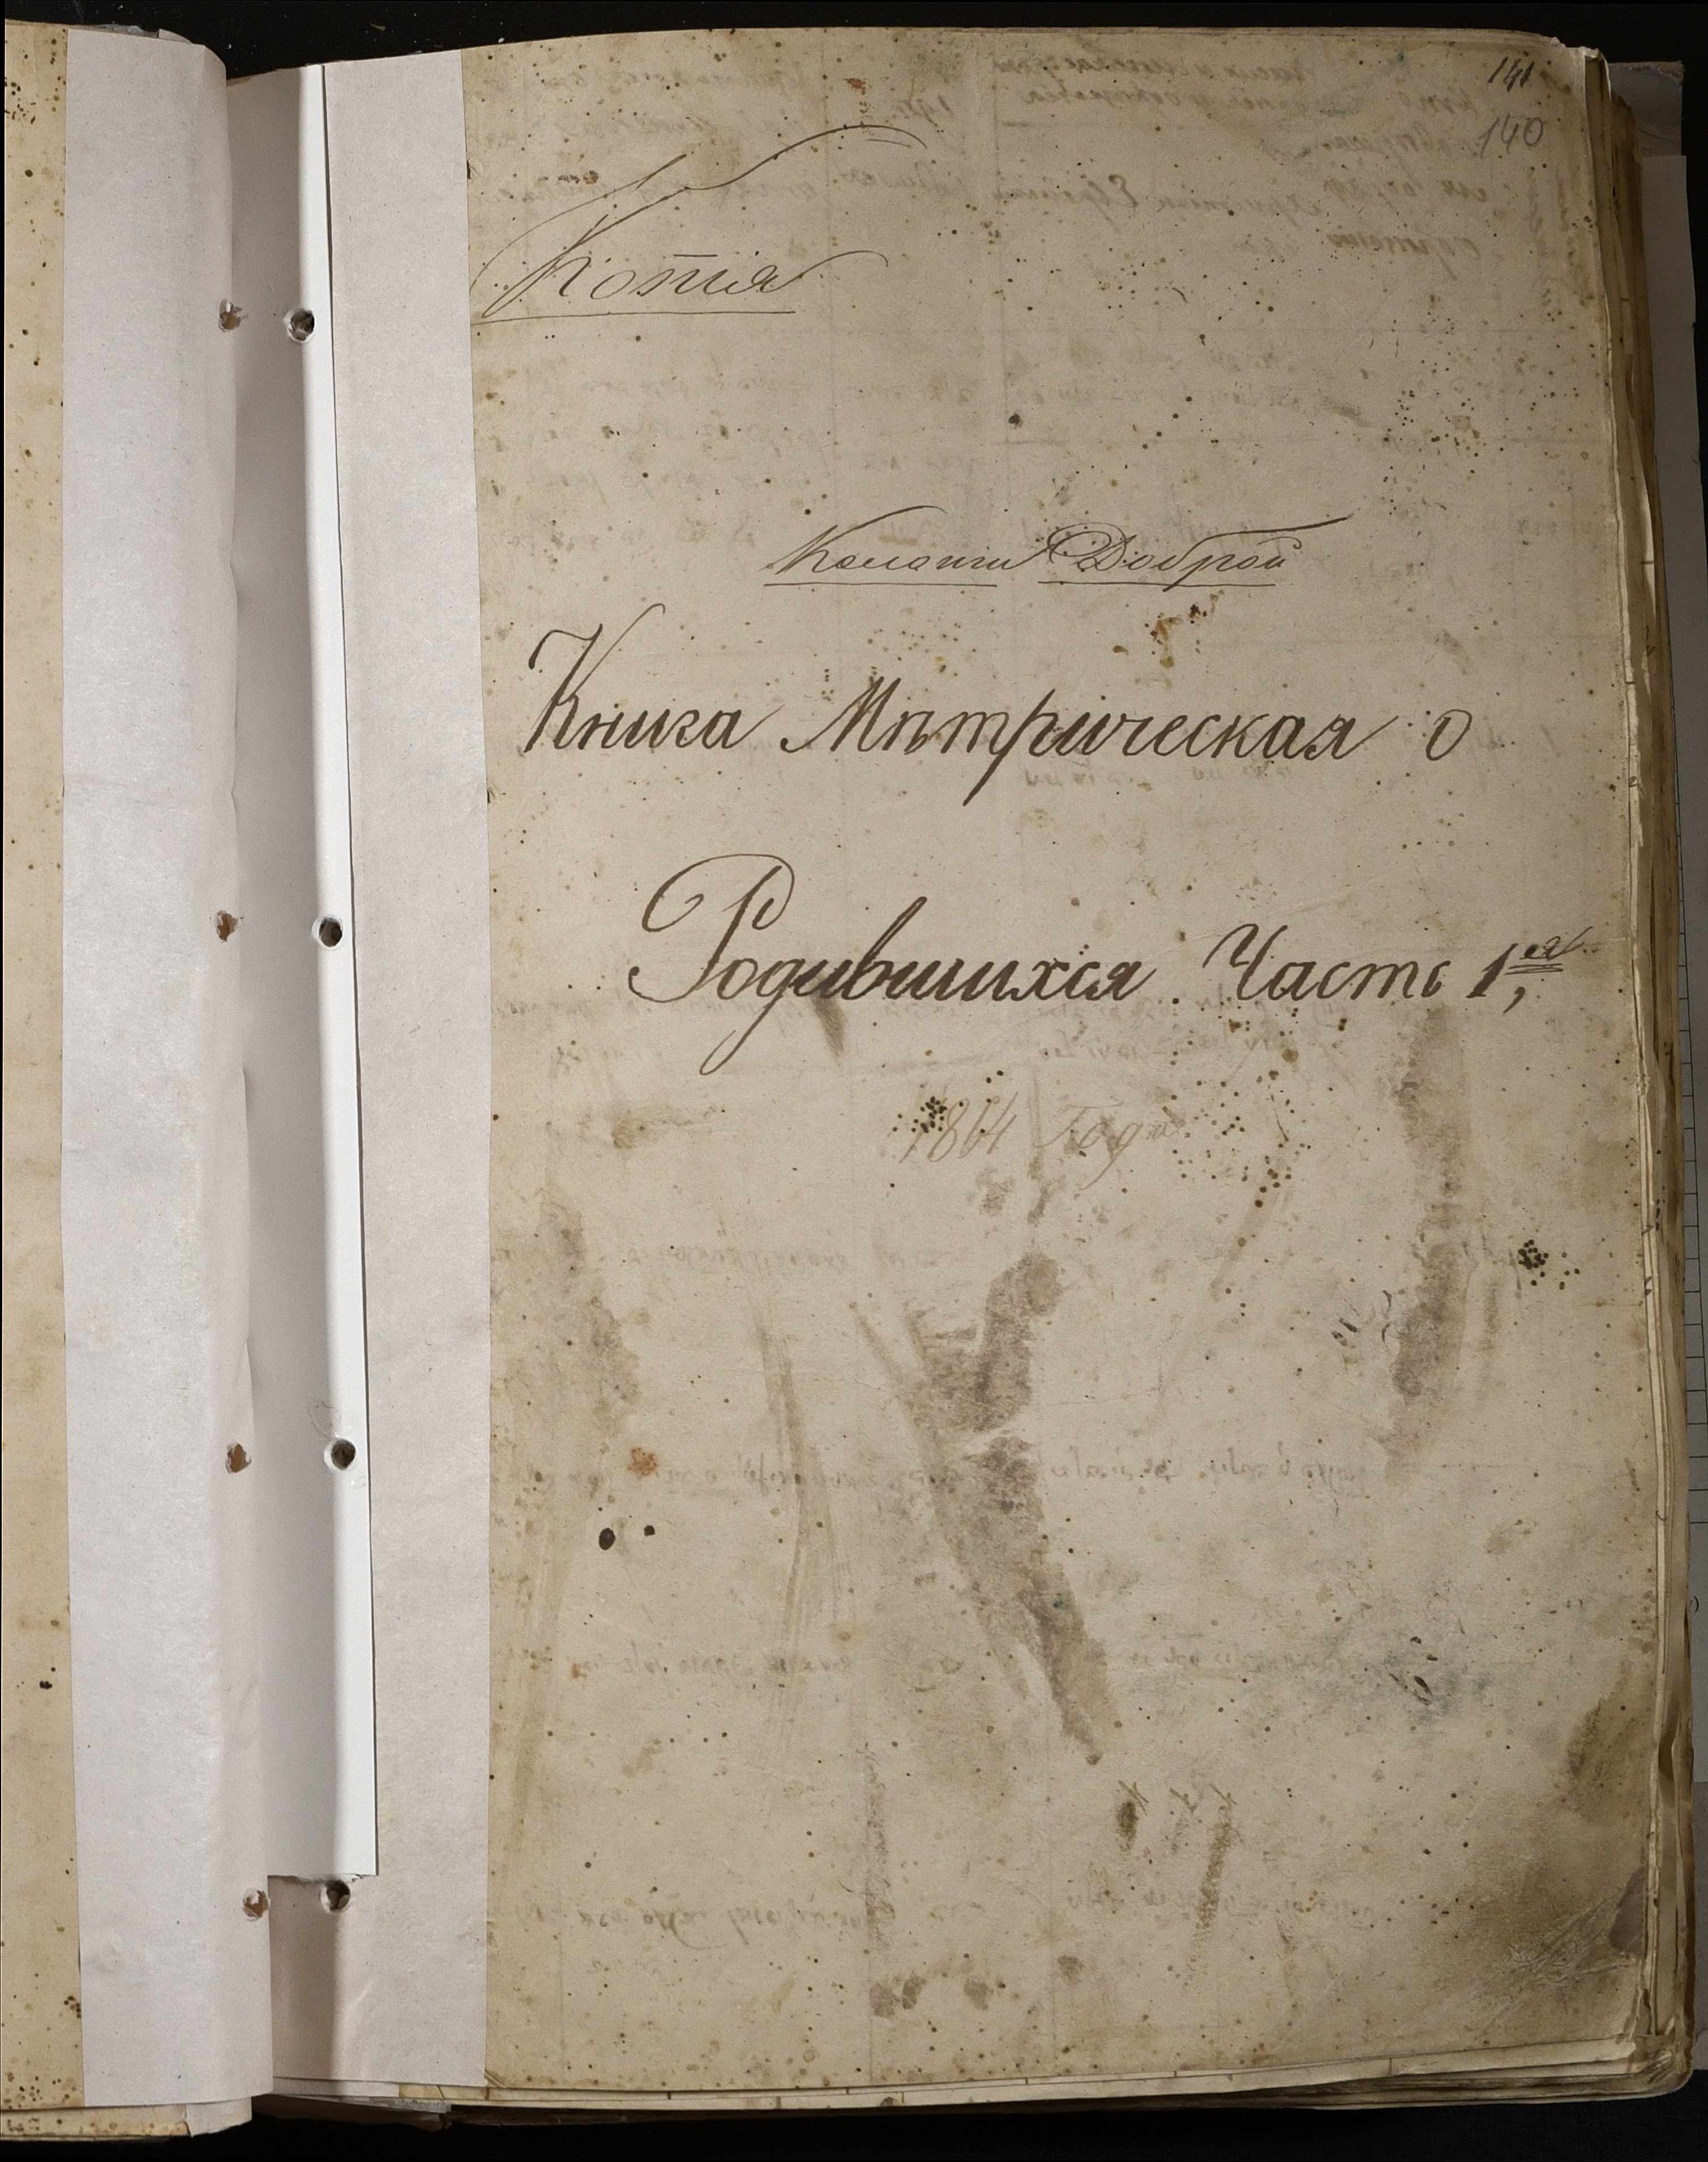 141
140
Копія
Колоніи Доброй
Книга Мѣтрическая о
Родившихся Часть 1,ая
1864 Года